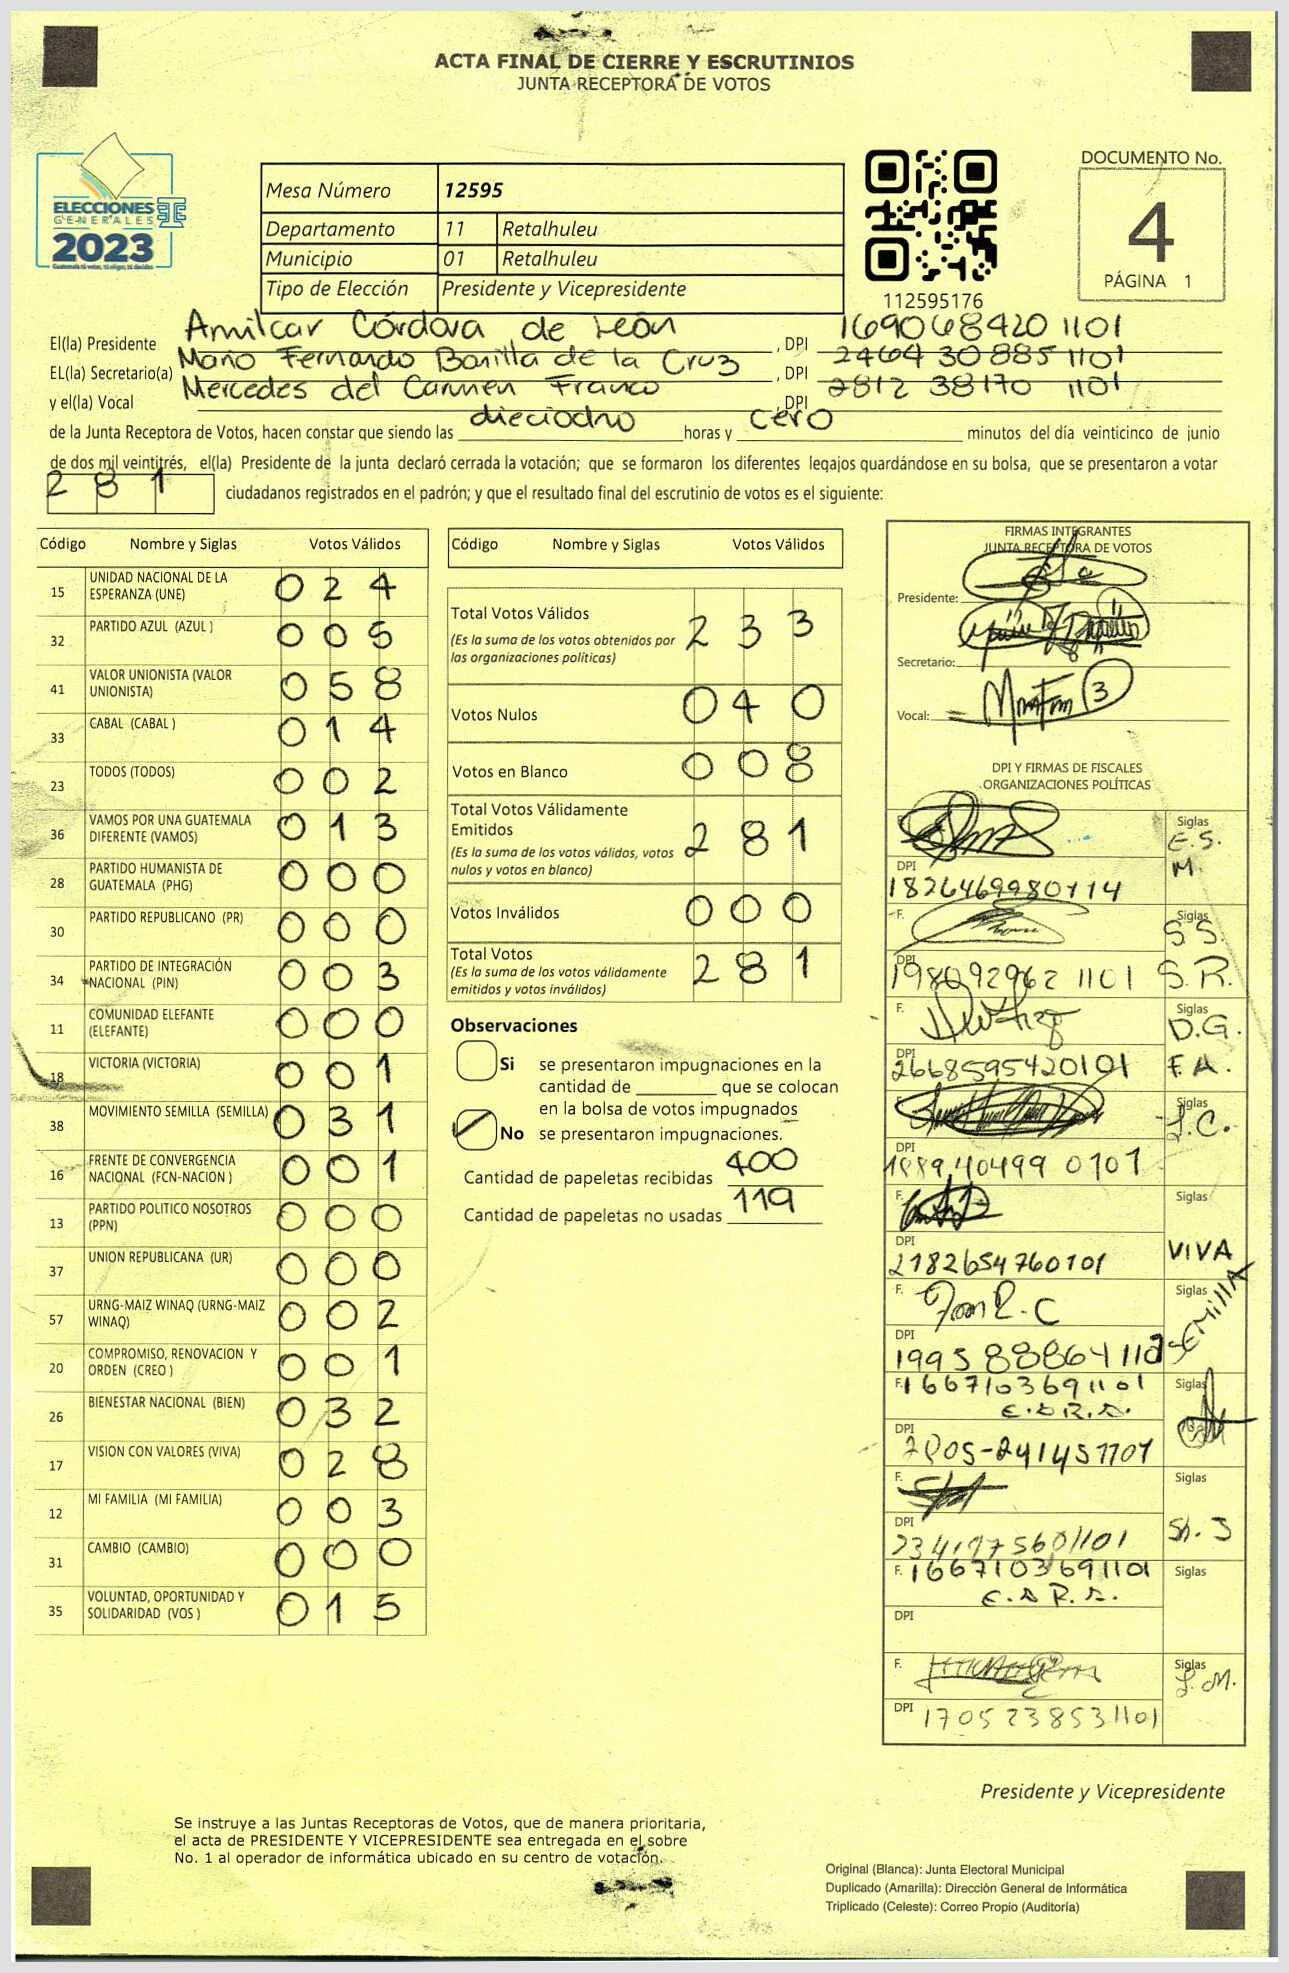 ACTA FINAL DE CIERRE Y ESCRUTINIOS
JUNTA RECEPTORA DE VOTOS
ELECCIONES
GENERALES
2023
Guatemala tú votas, tú eliges, tú decides
Mesa Número 12595
Departamento 11 Retalhuleu
Municipio 01 Retalhuleu
Tipo de Elección Presidente y Vicepresidente
112595176
DOCUMENTO No.
4
PÁGINA 1
El(la) Presidente Amilcar Córdova de León , DPI 1690684201101
EL(la) Secretario(a) Mario Fernando Bonilla de la Cruz , DPI 2464 30885 1101
y el(la) Vocal Mercedes del Carmen Franco , DPI 2812 38170 1101
de la Junta Receptora de Votos, hacen constar que siendo las dieciocho horas y cero minutos del día veinticinco de junio
de dos mil veintitrés, el(la) Presidente de la junta declaró cerrada la votación; que se formaron los diferentes legajos quardándose en su bolsa, que se presentaron a votar
281 ciudadanos registrados en el padrón; y que el resultado final del escrutinio de votos es el siguiente:
Código Nombre y Siglas Votos Válidos
15 UNIDAD NACIONAL DE LA ESPERANZA (UNE) 024
32 PARTIDO AZUL (AZUL ) 005
41 VALOR UNIONISTA (VALOR UNIONISTA) 058
33 CABAL (CABAL ) 014
23 TODOS (TODOS) 002
36 VAMOS POR UNA GUATEMALA DIFERENTE (VAMOS) 013
28 PARTIDO HUMANISTA DE GUATEMALA (PHG) 000
30 PARTIDO REPUBLICANO (PR) 000
34 PARTIDO DE INTEGRACIÓN NACIONAL (PIN) 003
11 COMUNIDAD ELEFANTE (ELEFANTE) 000
18 VICTORIA (VICTORIA) 001
38 MOVIMIENTO SEMILLA (SEMILLA) 031
16 FRENTE DE CONVERGENCIA NACIONAL (FCN-NACION ) 001
13 PARTIDO POLITICO NOSOTROS (PPN) 000
37 UNION REPUBLICANA (UR) 000
57 URNG-MAIZ WINAQ (URNG-MAIZ WINAQ) 002
20 COMPROMISO, RENOVACION Y ORDEN (CREO ) 001
26 BIENESTAR NACIONAL (BIEN) 032
17 VISION CON VALORES (VIVA) 028
12 MI FAMILIA (MI FAMILIA) 003
31 CAMBIO (CAMBIO) 000
35 VOLUNTAD, OPORTUNIDAD Y SOLIDARIDAD (VOS ) 015
Código Nombre y Siglas Votos Válidos
Total Votos Válidos 233
(Es la suma de los votos obtenidos por
las organizaciones políticas)
Votos Nulos 040
Votos en Blanco 008
Total Votos Válidamente
Emitidos 281
(Es la suma de los votos válidos, votos
nulos y votos en blanco)
Votos Inválidos 000
Total Votos 281
(Es la suma de los votos válidamente
emitidos y votos inválidos)
Observaciones
Si se presentaron impugnaciones en la
cantidad de ________ que se colocan
en la bolsa de votos impugnados
No se presentaron impugnaciones.
Cantidad de papeletas recibidas 400
Cantidad de papeletas no usadas 119
FIRMAS INTEGRANTES
JUNTA RECEPTORA DE VOTOS
Presidente:
Secretario:
Vocal:
DPI Y FIRMAS DE FISCALES
ORGANIZACIONES POLÍTICAS
Siglas E.S. M.
DPI
F. Siglas S.S. S.R.
DPI 198092962 1101
F. Siglas D.G. F.A.
DPI 2668595420101
Siglas
DPI 188940499 0101
F. Siglas VIVA
DPI 2182654760101
F. Siglas SEMILLA
DPI
F. 1667103691101 Siglas
DPI
F. Siglas
DPI
F. 1667103691101 Siglas
DPI
F. Siglas
DPI 1705238531101
Presidente y Vicepresidente
Se instruye a las Juntas Receptoras de Votos, que de manera prioritaria,
el acta de PRESIDENTE Y VICEPRESIDENTE sea entregada en el sobre
No. 1 al operador de informática ubicado en su centro de votación.
Original (Blanca): Junta Electoral Municipal
Duplicado (Amarilla): Dirección General de Informática
Triplicado (Celeste): Correo Propio (Auditoría)